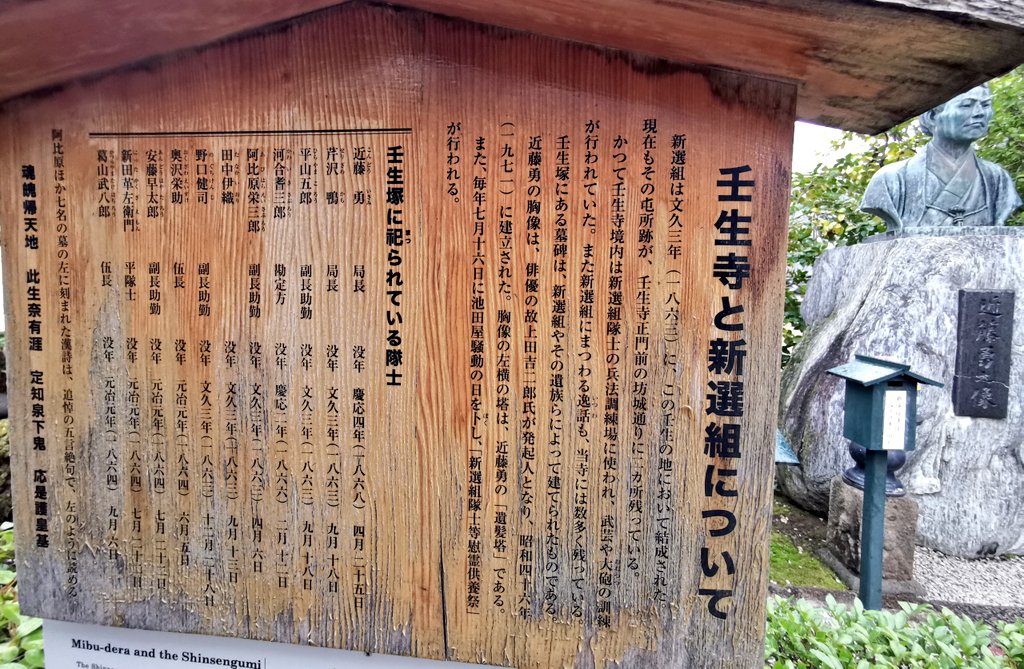 壬生寺と新選組について
新選組は文久三年（一八六三）に、この壬生の地において結成された。
現在もその屯所跡が、壬生寺正門前の坊城通りに二カ所残っている。
かつて壬生寺境内は新選組隊士の兵法訓練場に使われ、武芸や大砲の訓練
が行われていた。また新選組にまつわる逸話も、当寺には数多く残っている。
壬生塚にある墓碑は、新選組やその遺族らによって建てられたものである。
近藤勇の胸像は、俳優の故上田吉二郎氏が発起人となり、昭和四十六年
（一九七一）に建立された。胸像の左横の塔は、近藤勇の「遺髪塔」である。
また、毎年七月十六日に池田屋騒動の日を卜し、「新選組隊士等慰霊供養祭」
が行われる。
壬生塚に祀られている隊士
近藤 勇 局長 没年 慶応四年（一八六八） 四月二十五日
芹沢 鴨 局長 没年 文久三年（一八六三） 九月十八日
平山五郎 副長助勤 没年 文久三年（一八六三） 九月十八日
河合耆三郎 勘定方 没年 慶応二年（一八六六） 二月十二日
阿比原栄三郎 副長助勤 没年 文久三年（一八六三） 四月六日
田中伊織 没年 文久三年（一八六三） 九月十三日
野口健司 副長助勤 没年 文久三年（一八六三） 十二月二十八日
奥沢栄助 伍長 没年 元治元年（一八六四） 六月五日
安藤早太郎 副長助勤 没年 元治元年（一八六四） 七月二十二日
新田革左衛門 平隊士 没年 元治元年（一八六四） 七月二十二日
葛山武八郎 伍長 没年 元治元年（一八六四） 九月六日
阿比原ほか七名の墓の左に刻まれた漢詩は、追悼の五言絶句で、左のように読める
魂魄帰天地 此生奈有涯 定知泉下鬼 応是護皇基
Mibu-dera and the Shinsengumi
近藤勇之像